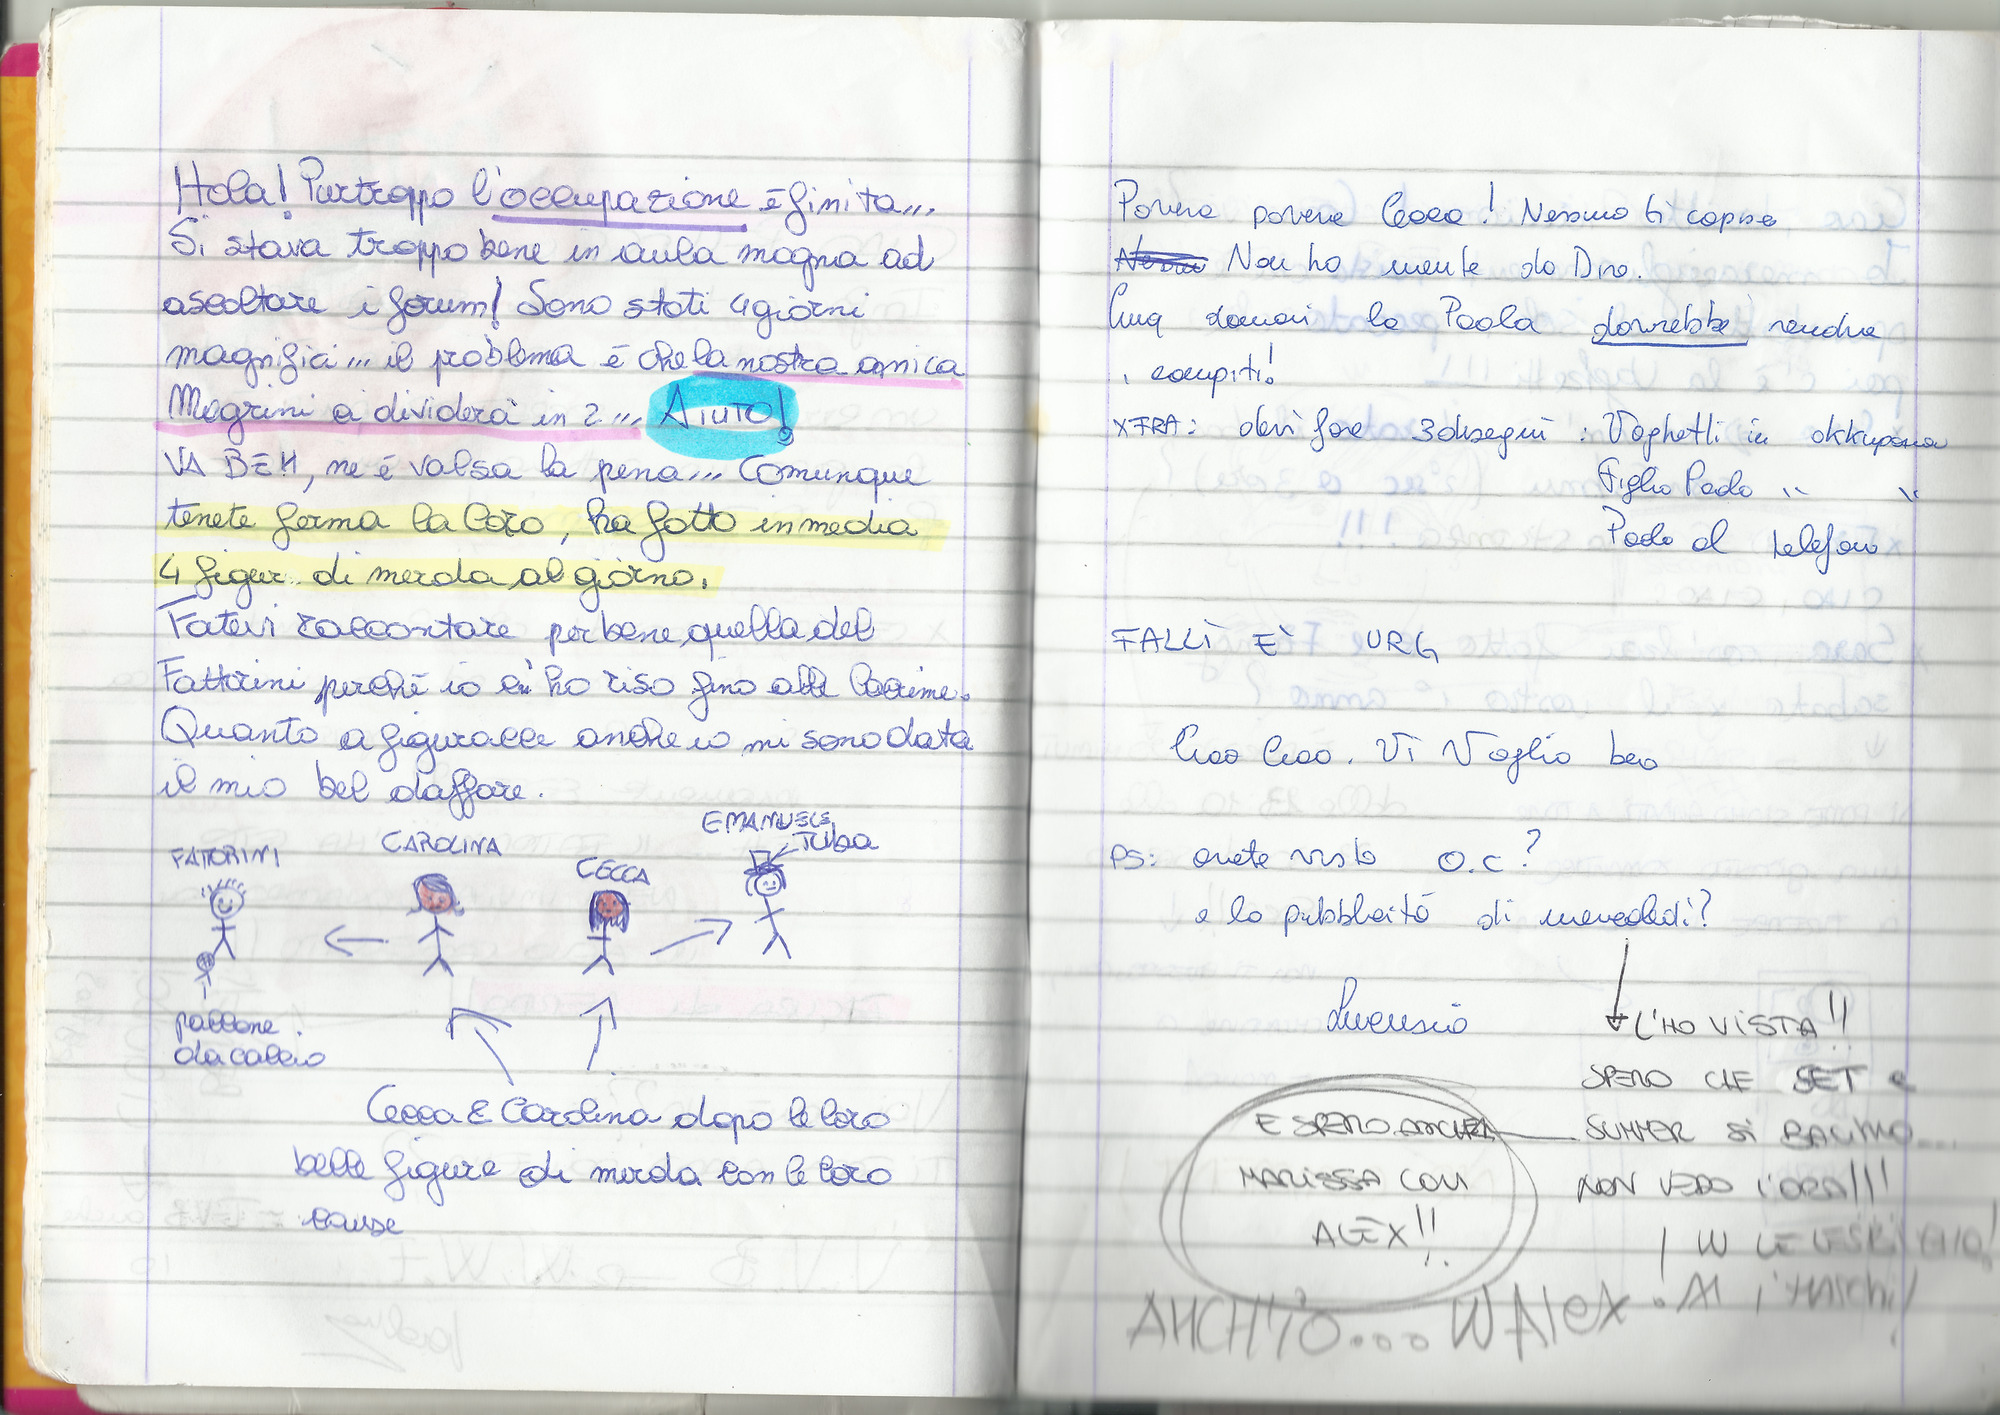 Hola! Purtroppo l'occupazione è finita...
Si stava troppo bene in aula magna ad
ascoltare i forum! Sono stati 4 giorni
magnifici... il problema è che la nostra amica
Magrini ci dividerà in 2... AIUTO!
VA BEH, ne è valsa la pena... Comunque
tenete ferma la Caro, ha fatto in media
4 figur.. di merda al giorno.
Fatevi raccontare per bene quella del
Fattorini perché io ci ho riso fino alle lacrime.
Quanto a figuracce anche io mi sono data
il mio bel daffare.
FATTORINI
CAROLINA
CECCA
EMANUELE
TUBA
pallone
da calcio
Cecca E Carolina dopo le loro
belle figure di merda con le loro
cause
Povera povera Cecca! Nessuno ti capisce
Non ho niente da Dire.
Cmq domani la Paola dovrebbe rendere
i compiti!
XFRA: devi fare 3 disegni: Voghetti in okkupazione
Figlio Paolo " "
Paolo al telefono
FALLI È URG
Ciao Ciao. Vi Voglio bene
PS: avete visto O.C?
e la pubblicità di mercoledì?
L'HO VISTA!!
SPERO CHE SET e
SUMMER SI BACINO...
NON VEDO L'ORA!!!
E SPERO ANCHE
MARISSA CON
ALEX!!
! W LE LESBICHE!
ANCH'IO... W Alex!